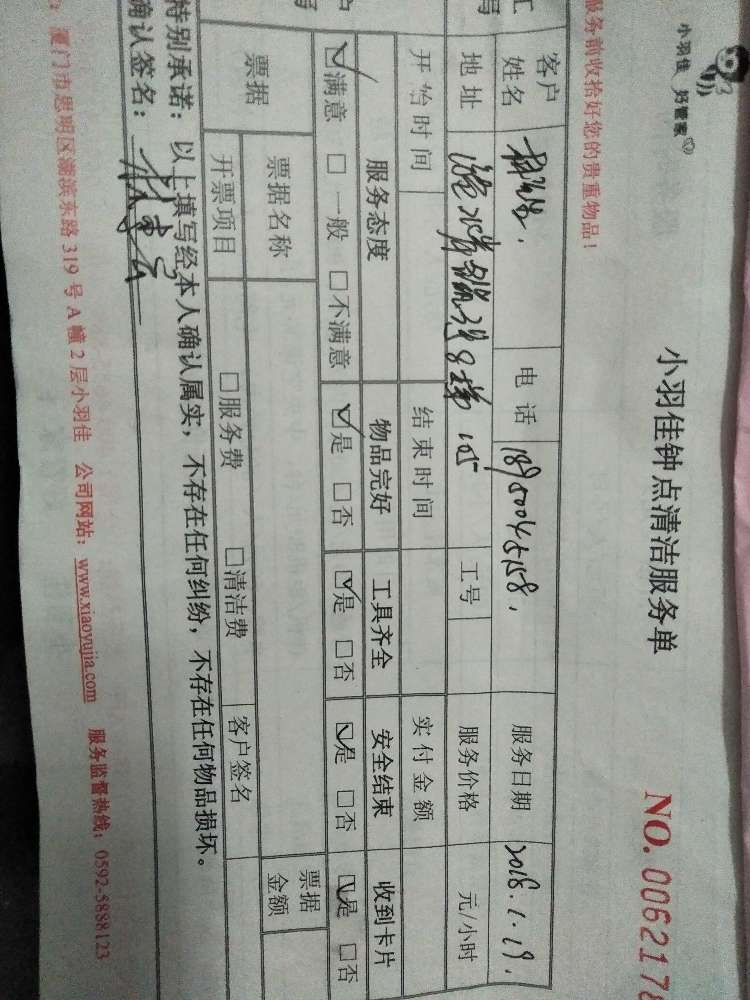 小羽佳 好管家
小羽佳钟点清洁服务单
NO. 006217
服务前收拾好您的贵重物品！
客户姓名 电话 服务日期 2018.1.19.
地址 8梯 105 工号 服务价格 元/小时
开始时间 结束时间 实付金额
服务态度 物品完好 工具齐全 安全结束 收到卡片
☑满意 □一般 □不满意 ☑是 □否 ☑是 □否 ☑是 □否 ☑是 □否
票据 票据名称 票据金额
开票项目 □服务费 □清洁费 客户签名
特别承诺：以上填写经本人确认属实，不存在任何纠纷，不存在任何物品损坏。
确认签名：
厦门市思明区湖滨东路 319 号 A 幢 2 层小羽佳 公司网站：www.xiaoyujia.com 服务监督热线：0592-5888123